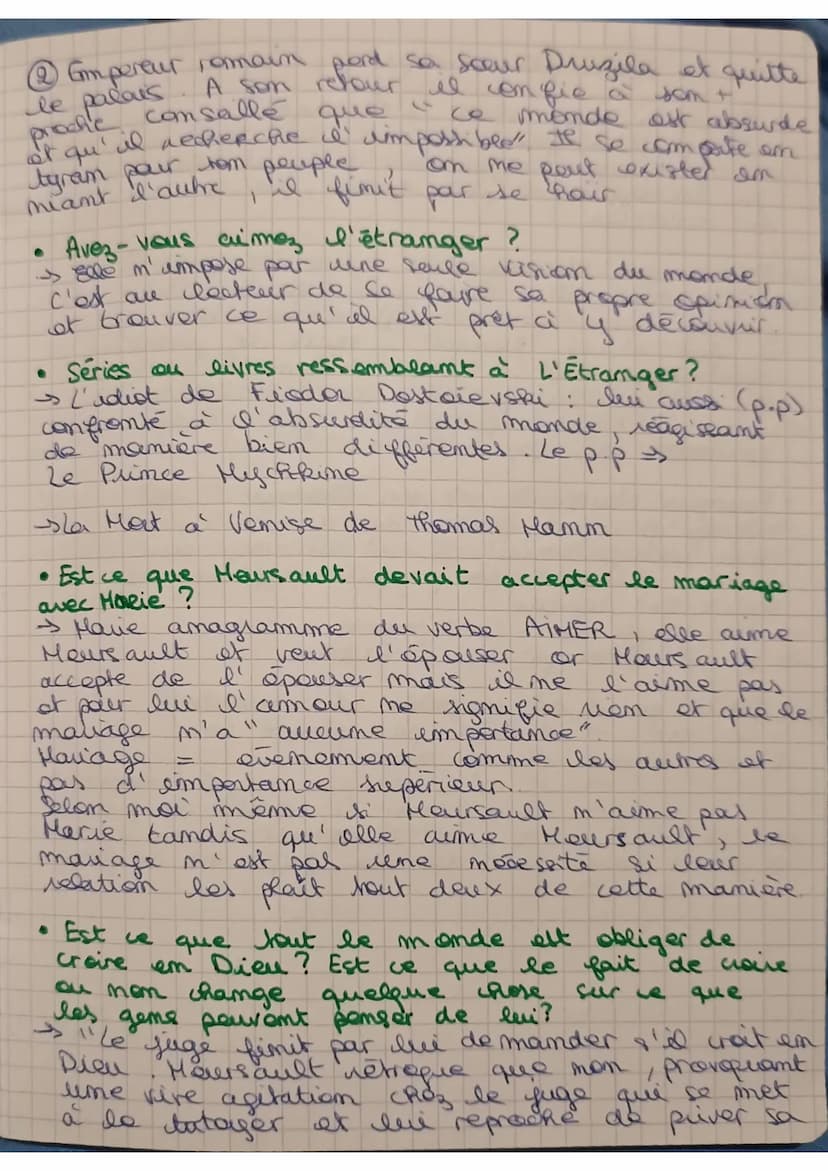 ② Empereur romain perd sa sœur Druzila et quitte
le palais. A son retour il confie à son +
proche consallé que " ce monde est absurde
et qu'il recherche l'impossible". Il se comporte en
tyran pour son peuple, on ne peut exister en
niant l'autre, il finit par se haïr
• Avez-vous aimez l'étranger ?
→ Elle n'impose par une seule vision du monde,
c'est au lecteur de se faire sa propre opinion
et trouver ce qu'il est prêt à y découvrir.
• Séries ou livres ressemblant à L'Étranger ?
→ L'idiot de Fiodor Dostoïevski : lui aussi (p.p)
confronté à l'absurdité du monde, réagissant
de manière bien différentes. Le p.p ⇒
Le Prince Mychkine
→ La Mort à Venise de Thomas Mann
• Est ce que Meursault devait accepter le mariage
avec Marie ?
→ Marie anagramme du verbe AIMER, elle aime
Meursault et veut l'épouser or Meursault
accepte de l'épouser mais il ne l'aime pas
et pour lui l'amour ne signifie rien et que le
mariage n'a " aucune importance".
Mariage = évènement comme les autres et
pas d'importance supérieur.
Selon moi même si Meursault n'aime pas
Marie tandis qu'elle aime Meursault, le
mariage n'est pas une nécessité si leur
relation les plaît tout deux de cette manière.
• Est ce que tout le monde est obliger de
croire en Dieu ? Est ce que le fait de croire
ou non change quelque chose sur ce que
les gens peuvent penser de lui?
→ "Le juge finit par lui demander s'il croit en
Dieu. Meursault rétroque que non, provoquant
une vive agitation chez le juge qui se met
à le tutoyer et lui reproche de priver sa